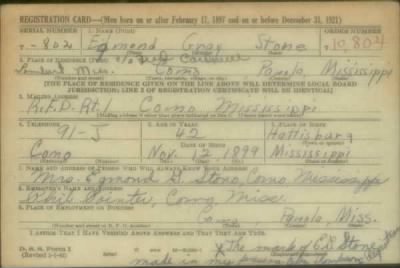 REGISTRATION CARD—(Men born on or after February 17, 1897 and on or before December 31, 1921)
SERIAL NUMBER 1. NAME (Print) ORDER NUMBER
T-802 Egmond Gray Stone 10,802
2. PLACE OF RESIDENCE (Print)
Como Panola, Mississippi
[THE PLACE OF RESIDENCE GIVEN ON THE LINE ABOVE WILL DETERMINE LOCAL BOARD
JURISDICTION; LINE 2 OF REGISTRATION CERTIFICATE WILL BE IDENTICAL]
3. MAILING ADDRESS
R.F.D. Rt. 1 Como Mississippi
4. TELEPHONE 5. AGE IN YEARS 6. PLACE OF BIRTH
91-J 42 Hattisburg
DATE OF BIRTH
Como Nov. 12, 1899 Mississippi
7. NAME AND ADDRESS OF PERSON WHO WILL ALWAYS KNOW YOUR ADDRESS
Mrs. Egmond G. Stone, Como Mississippi
8. EMPLOYER'S NAME AND ADDRESS
Pointer, Como Miss.
9. PLACE OF EMPLOYMENT OR BUSINESS
Como Panola, Miss.
I AFFIRM THAT I HAVE VERIFIED ABOVE ANSWERS AND THAT THEY ARE TRUE.
D. S. S. Form 1 X The mark of Stone
made in my